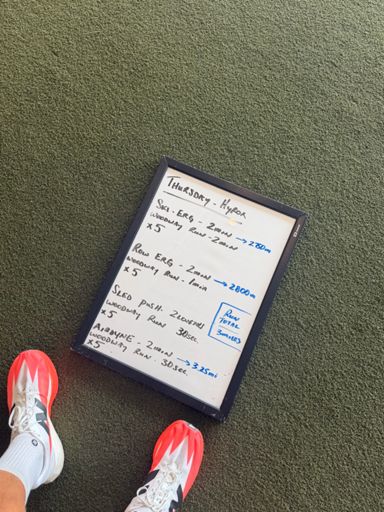 THURSDAY - HYROX
SKI-ERG - 2MIN → 2780m
WOODWAY RUN - 2MIN
x5
ROW ERG - 2MIN → 2800m
WOODWAY RUN - 1MIN
x5
SLED PUSH 2 LENGTHS
WOODWAY RUN 30SEC
x5
RUN
TOTAL
3 MILES
AIRDYNE - 2MIN → 3.25mi
WOODWAY RUN - 30SEC
x5